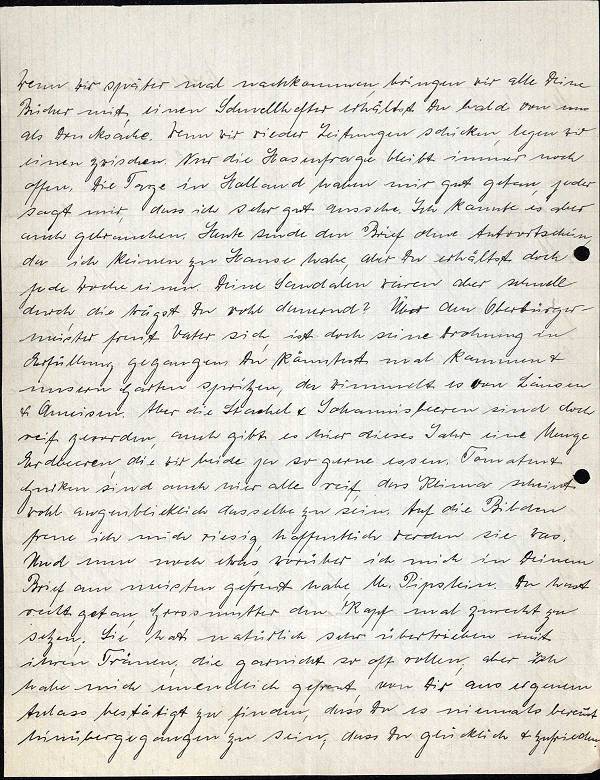 Wenn wir später mal nachkommen, bringen wir alle Deine
Bücher mit, einen Schnellhefter erhältst Du bald von uns
als Drucksache. Wenn wir wieder Zeitungen schicken, legen wir
einen zwischen. Nur die Hosenfrage bleibt immer noch
offen. Die Tage in Holland haben mir gut getan, jeder
sagt mir, dass ich sehr gut aussehe. Ich konnte es aber
auch gebrauchen. Heute sende den Brief ohne Antwortschein,
da ich keinen zu Hause habe, aber Du erhältst doch
jede Woche einen. Deine Sandalen waren aber schnell
durch die trägst Du wohl dauernd? Über den Oberbürger-
meister freut Vater sich, ist doch seine Drohung in
Erfüllung gegangen. Du könntest mal kommen &
unsern Garten spritzen, da wimmelt es von Läusen
& Ameisen. Aber die Stachel & Johannisbeeren sind doch
reif geworden, auch gibt es hier dieses Jahr eine Menge
Erdbeeren, die wir beide ja so gerne essen. Tomaten &
Gurken sind auch hier alle reif, das Klima scheint
wohl augenblicklich dasselbe zu sein. Auf die Bilder
freue ich mich riesig, hoffentlich werden sie was.
Und nun noch etwas, worüber ich mich in Deinem
Brief am meisten gefreut habe Mr. Pipstein. Du hast
recht getan, Grossmutter den Kopf mal zurecht zu
setzen. Sie hat natürlich sehr übertrieben mit
ihren Tränen, die garnicht so oft rollen, aber ich
habe mich unendlich gefreut, von Dir aus eigenem
Anlass bestätigt zu finden, dass Du es niemals bereust
hinübergegangen zu sein, dass Du glücklich & zufrieden